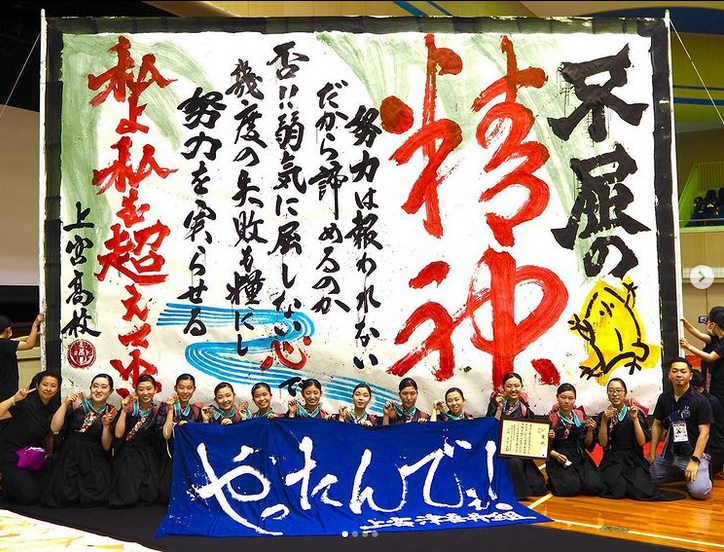 不屈の
精神
努力は報われない
だから諦めるのか
否!!弱気に屈しない心で
幾度の失敗も糧にし
努力を実らせる
私よ私を超えてゆけ
上宮高校
やったんでぇ!